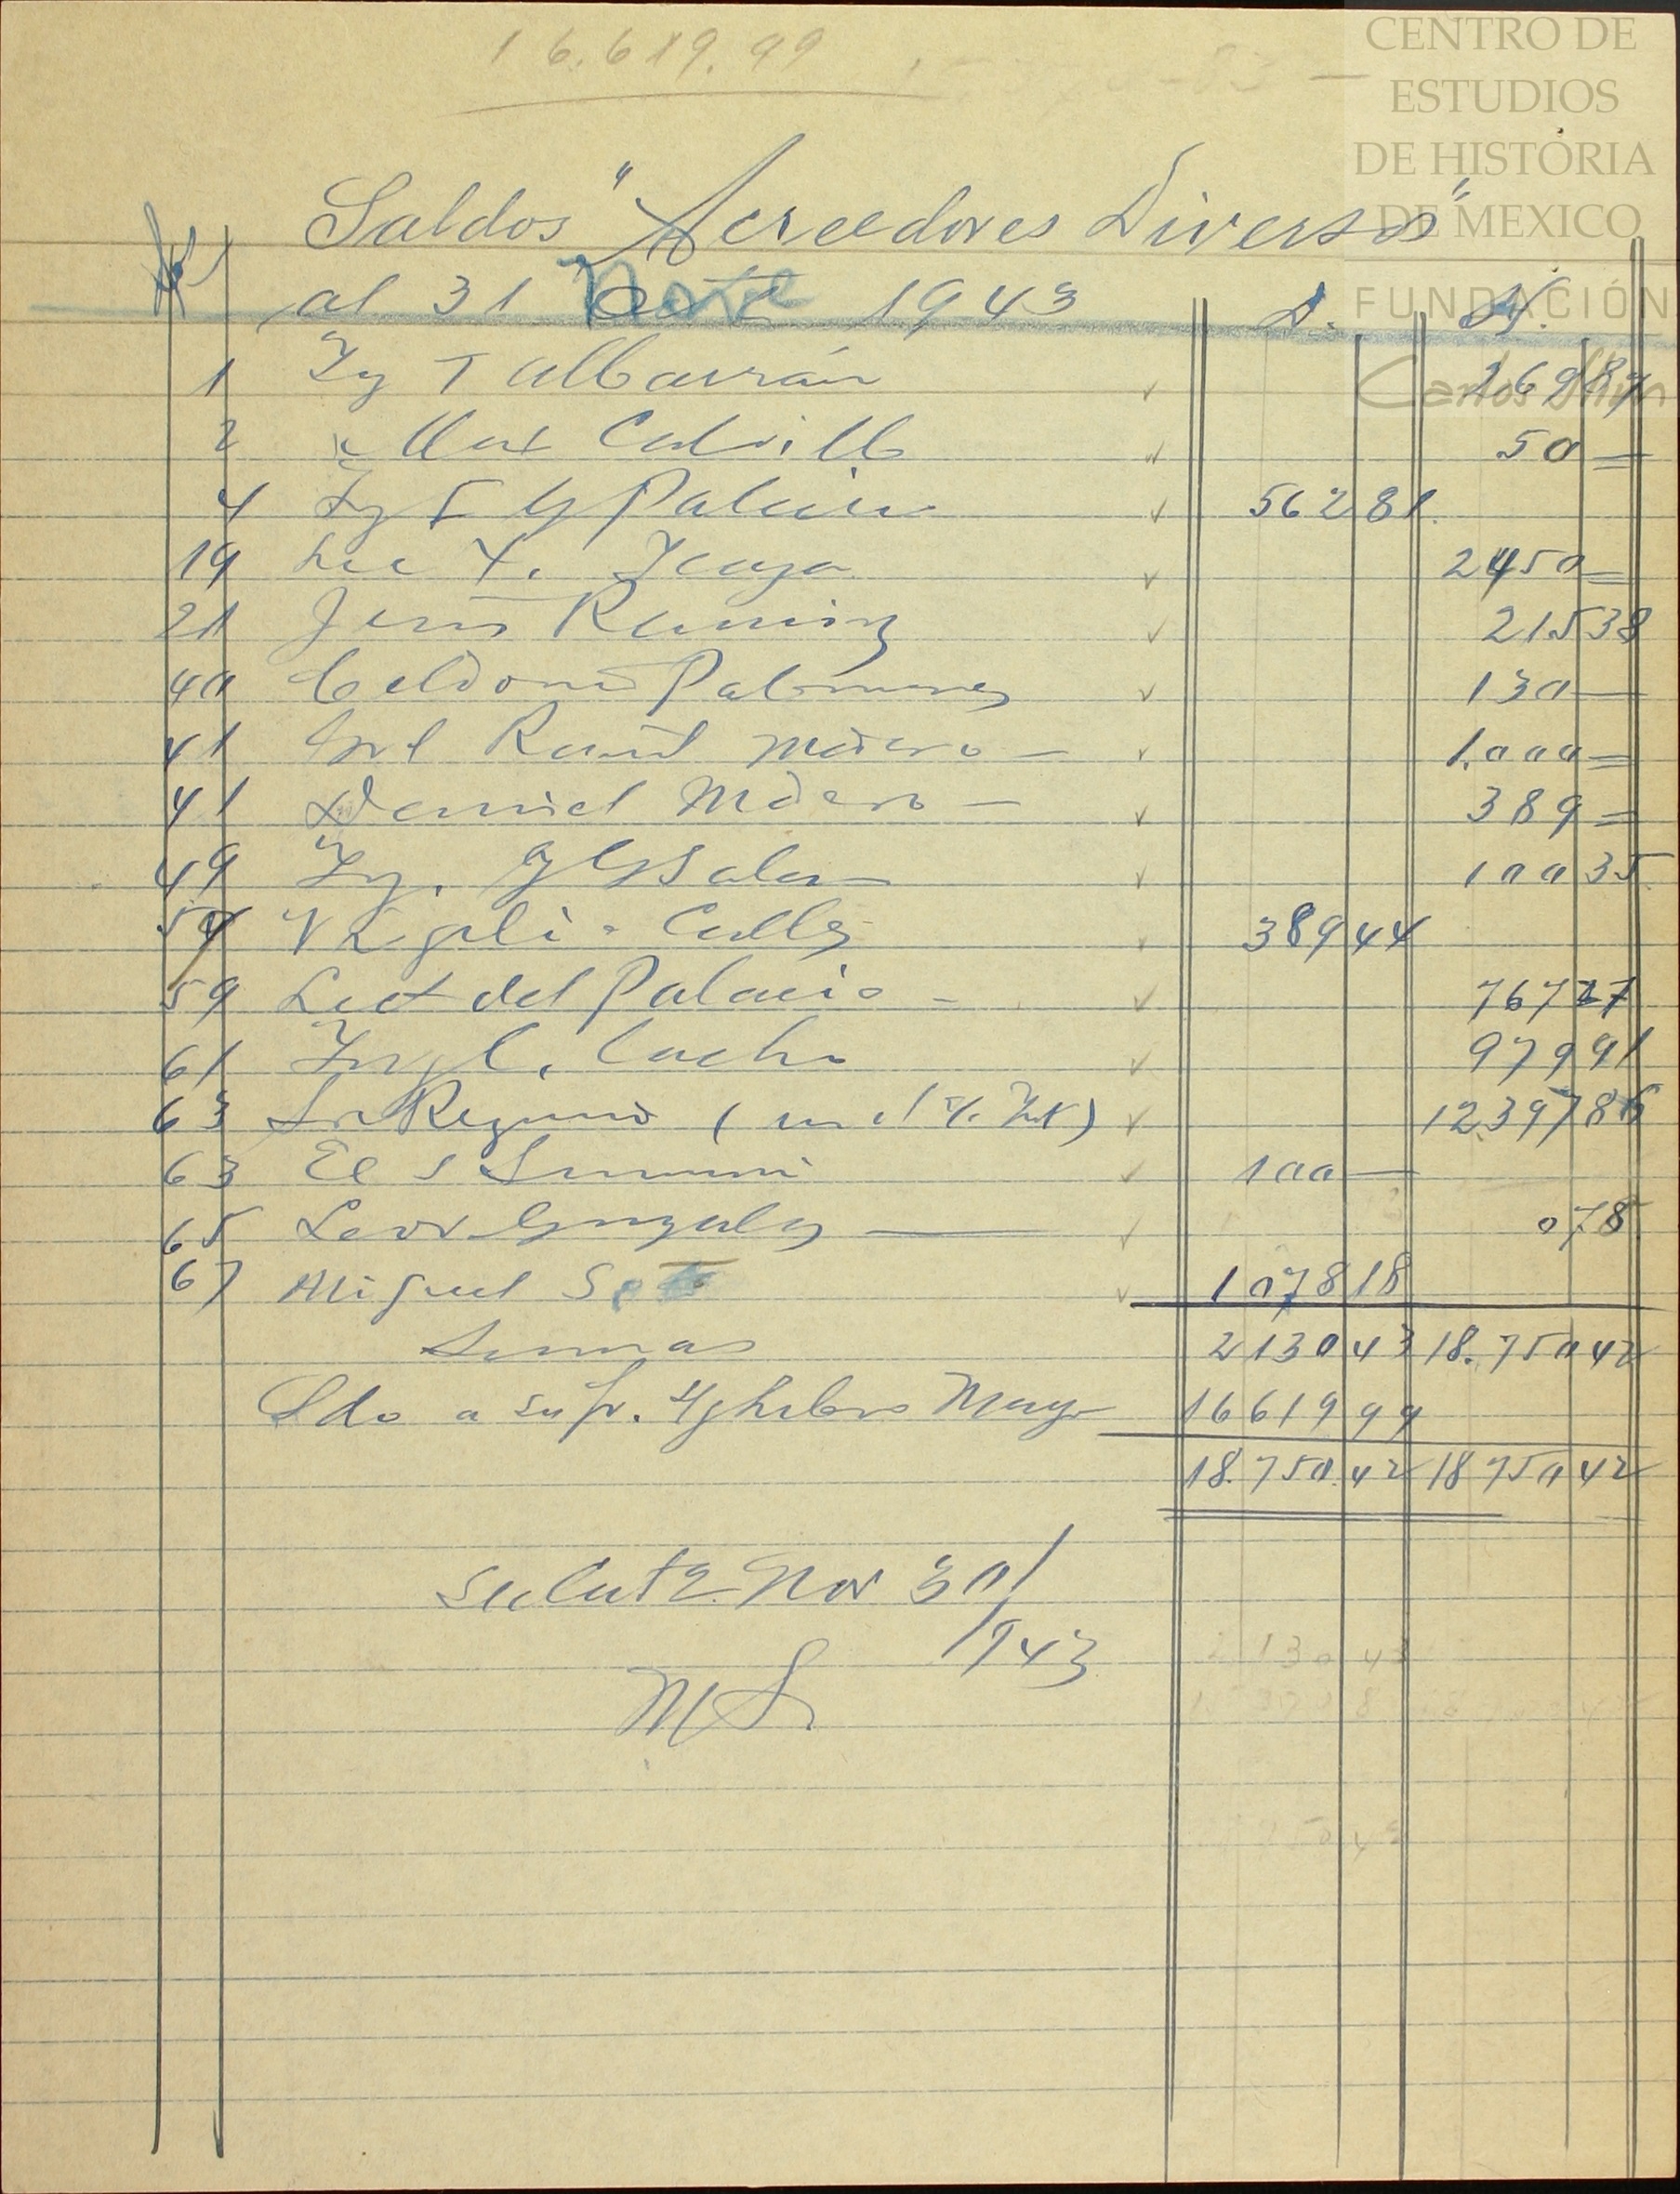 16.619.99
CENTRO DE
ESTUDIOS
DE HISTORIA
DE MEXICO
FUNDACIÓN
Carlos Slim
Saldos "Acreedores Diversos"
al 31 Nove 1943 D. H.
1 Yg T Albarrán ✓ 269 87
2 " Max Calvillo ✓ 50 =
4 Yg F G Palacio ✓ 562 81
19 Lic Y. Icaza ✓ 2450 =
21 Jesús Ramirez ✓ 215 38
40 Celdonio Palomares ✓ 130 —
41 Gral Raúl Madero — ✓ 1.000 =
41 Daniel Madero — ✓ 389 =
49 Yg. ✓ 100 35
54 Calles 389 44
59 Lect del Palacio - ✓ 767 27
61 Yng C. Cacho ✓ 979 91
63 Sr Regino ( ✓ 12.397 86
63 El S ✓ 100 —
65 Leov Gonzalez — ✓ 0 78
67 Miguel Soto ✓ 1078 18
Sumas 2130 43 18.750 42
Sdo a su fv. Mayor 16619 99
18.750.42 18750 42
Nov 30/
1943
MS